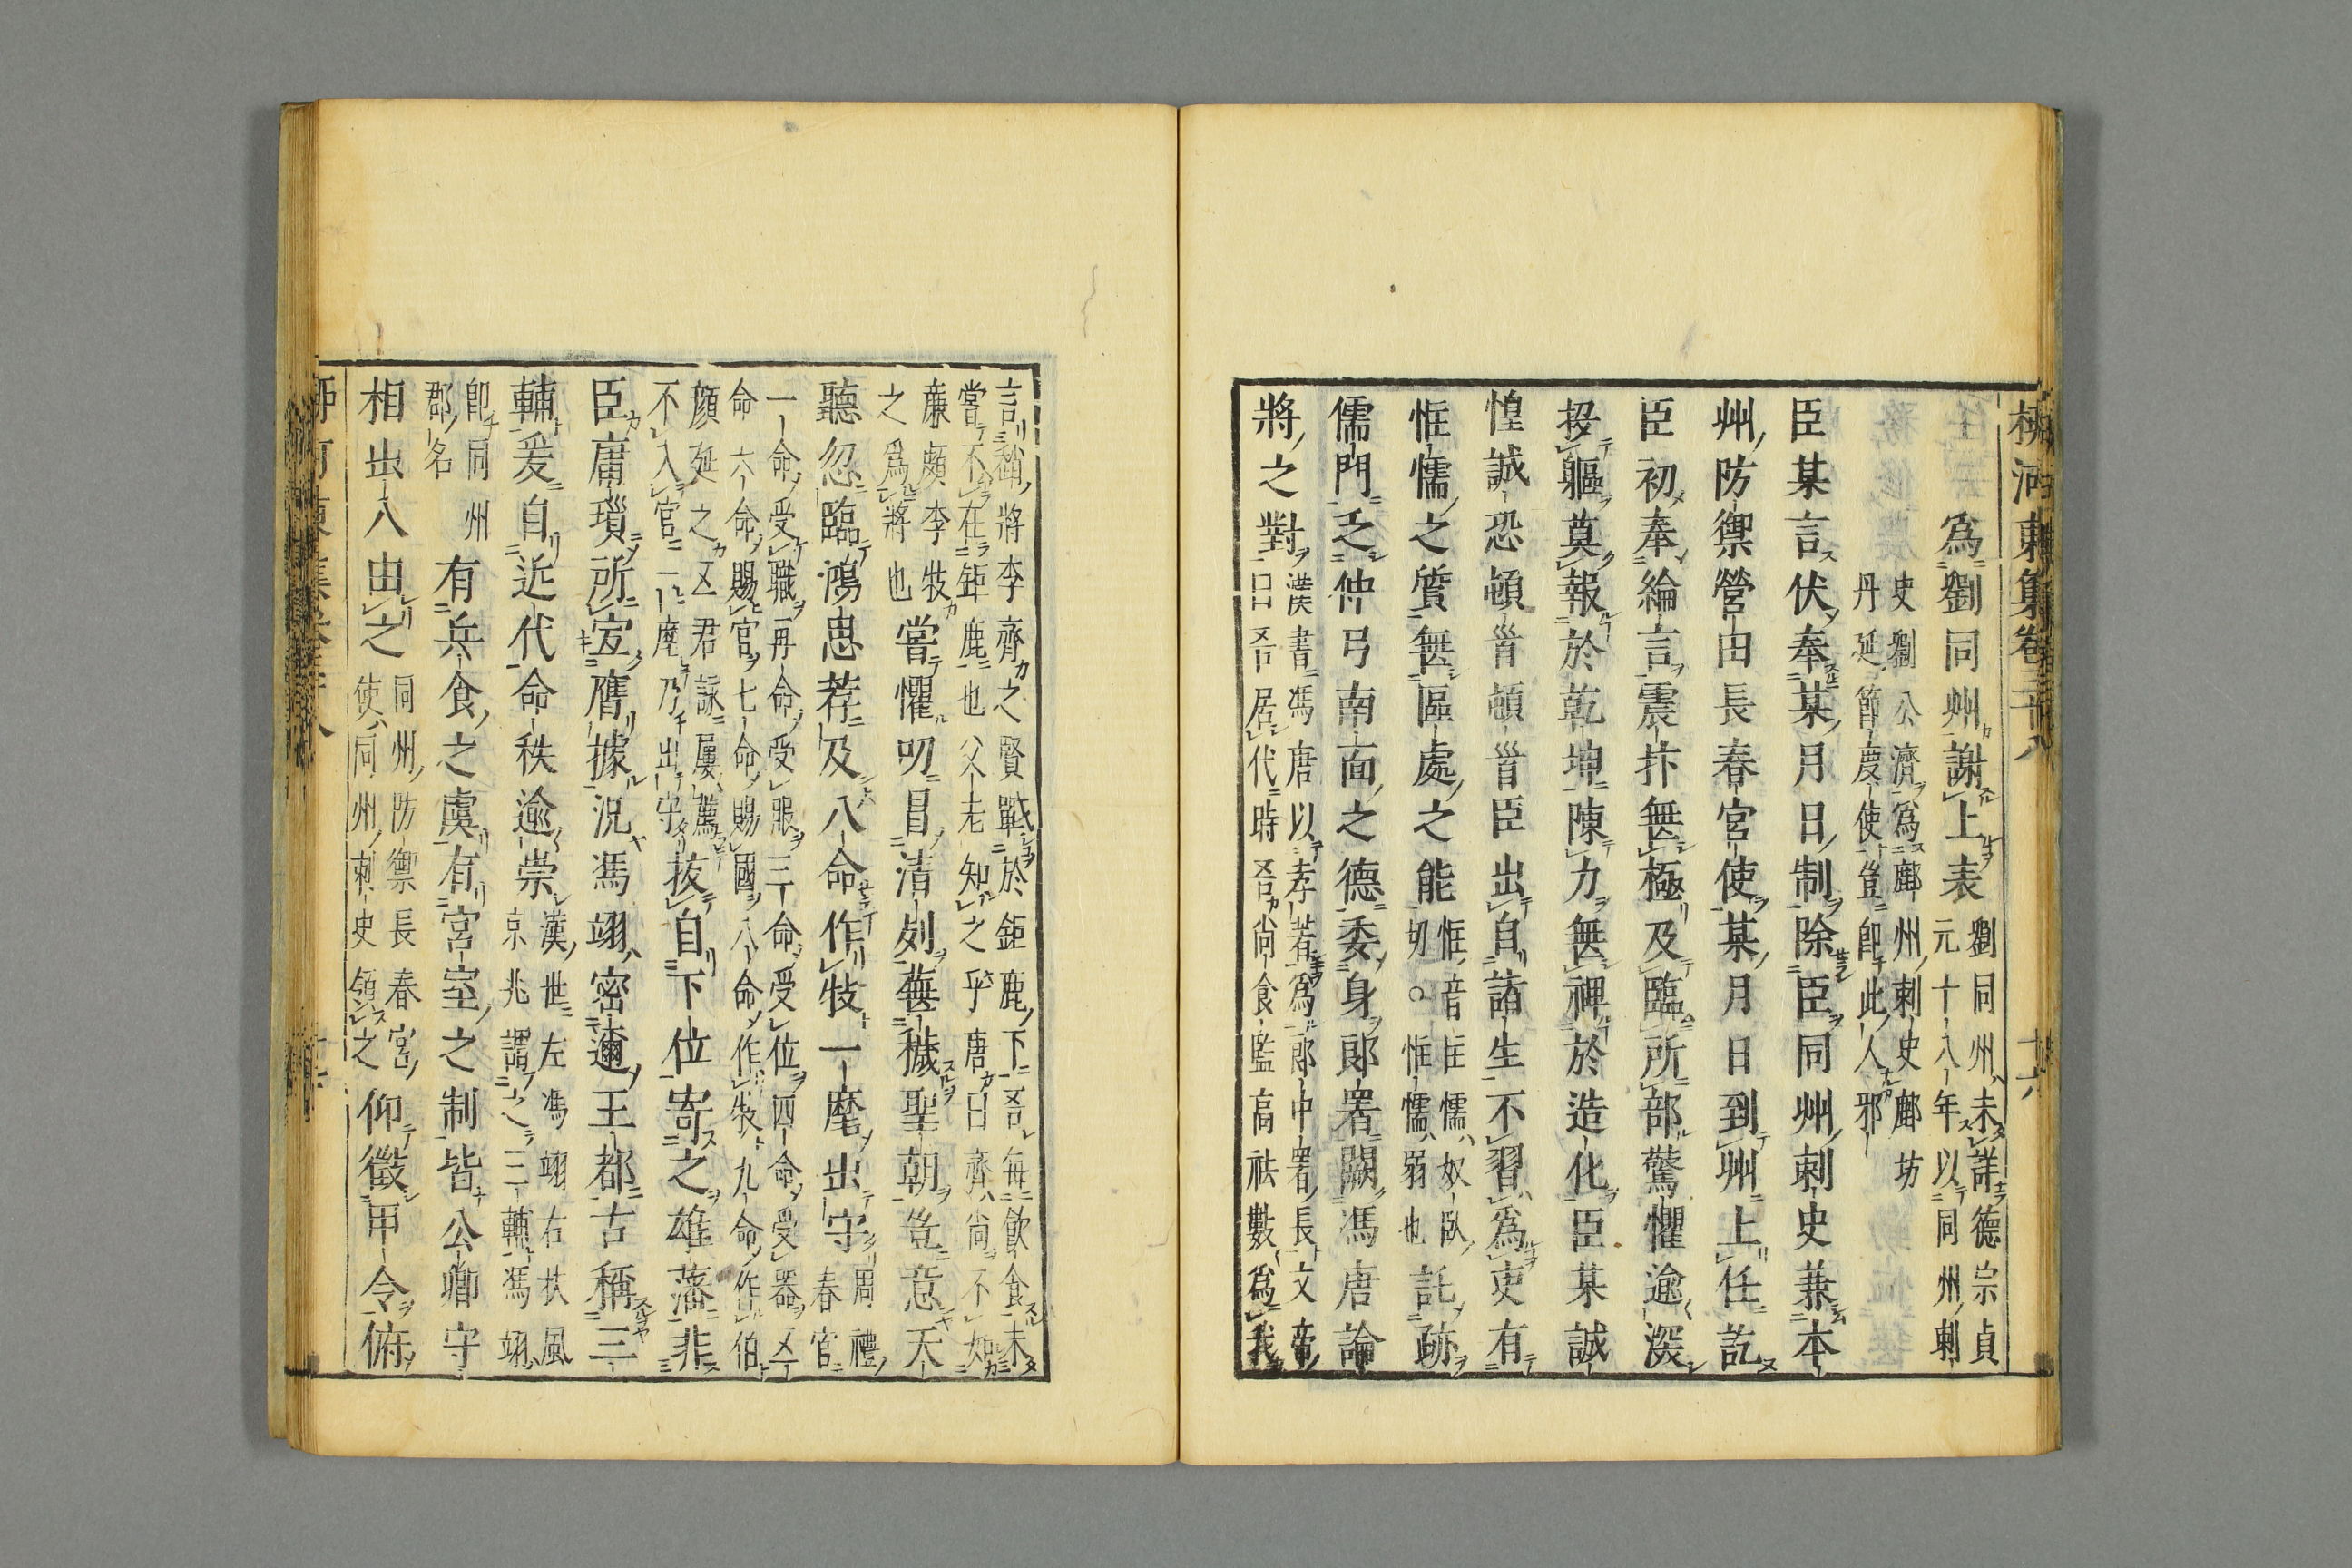 柳河東集卷三十八 十六
為劉同州謝上表
劉同州未詳德宗貞
元十八年以同州刺
史劉公濟為鄜州刺史鄜坊
丹延節度使豈即此人邪
臣某言伏奉某月日制除臣同州刺史兼本
州防禦營田長春宮使某月日到州上任訖
臣初奉綸言震抃無極及臨所部驚懼逾深
投軀莫報於乾坤陳力無裨於造化臣某誠
惶誠恐頓首頓首臣出自諸生不習為吏有
恇懦之質無區處之能
恇音匡懦奴臥
切○恇懦弱也
託跡
儒門乏仲弓南面之德委身郎署闕馮唐論
將之對
漢書馮唐以孝著為郎中署長文帝
曰吾居代時吾尚食監高祛數為我
言趙將李齊之賢戰於鉅鹿下吾每飲食未
嘗不在鉅鹿也父老知之乎唐曰齊尚不如
廉頗李牧
之為將也
嘗懼叨冒清列蕪穢聖朝豈意天
聽忽臨鴻恩荐及八命作牧一麾出守
周禮
春官
一命受職再命受服三命受位四命受器五
命六命賜官七命賜國八命作牧九命作伯
顏延之五君詠屢薦
不入官一麾乃出守
拔自下位寄之雄藩非
臣庸瑣所宜膺據況馮翊密邇王都古稱三
輔爰自近代命秩逾崇
漢世左馮翊右扶風
京兆謂之三輔馮翊
即同州
郡名
有兵食之虞有宮室之制皆公卿守
相出入由之
同州防禦長春宮
使同州刺史領之
仰徵甲令俯